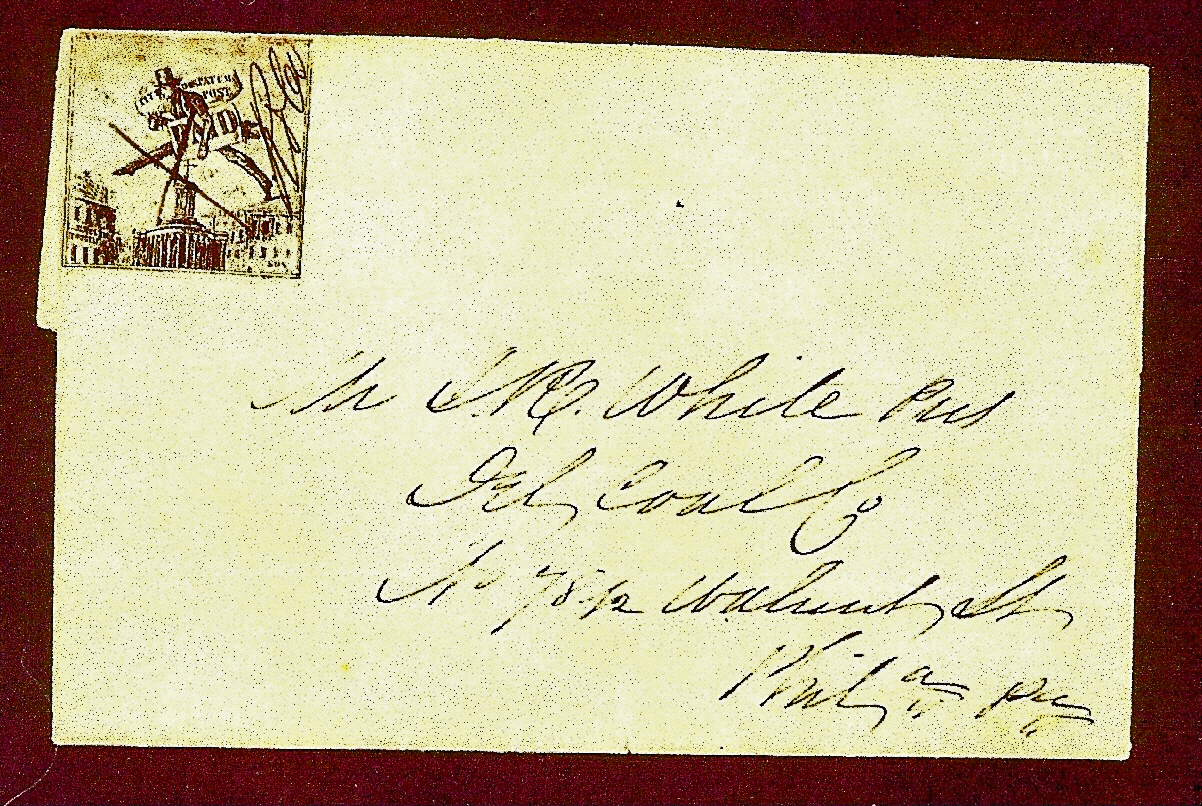 CITY DESPATCH
POST
PAID
Mr J. R. White Pres
Del Coal Co
No 78 1/2 Walnut St
Phil a Pa